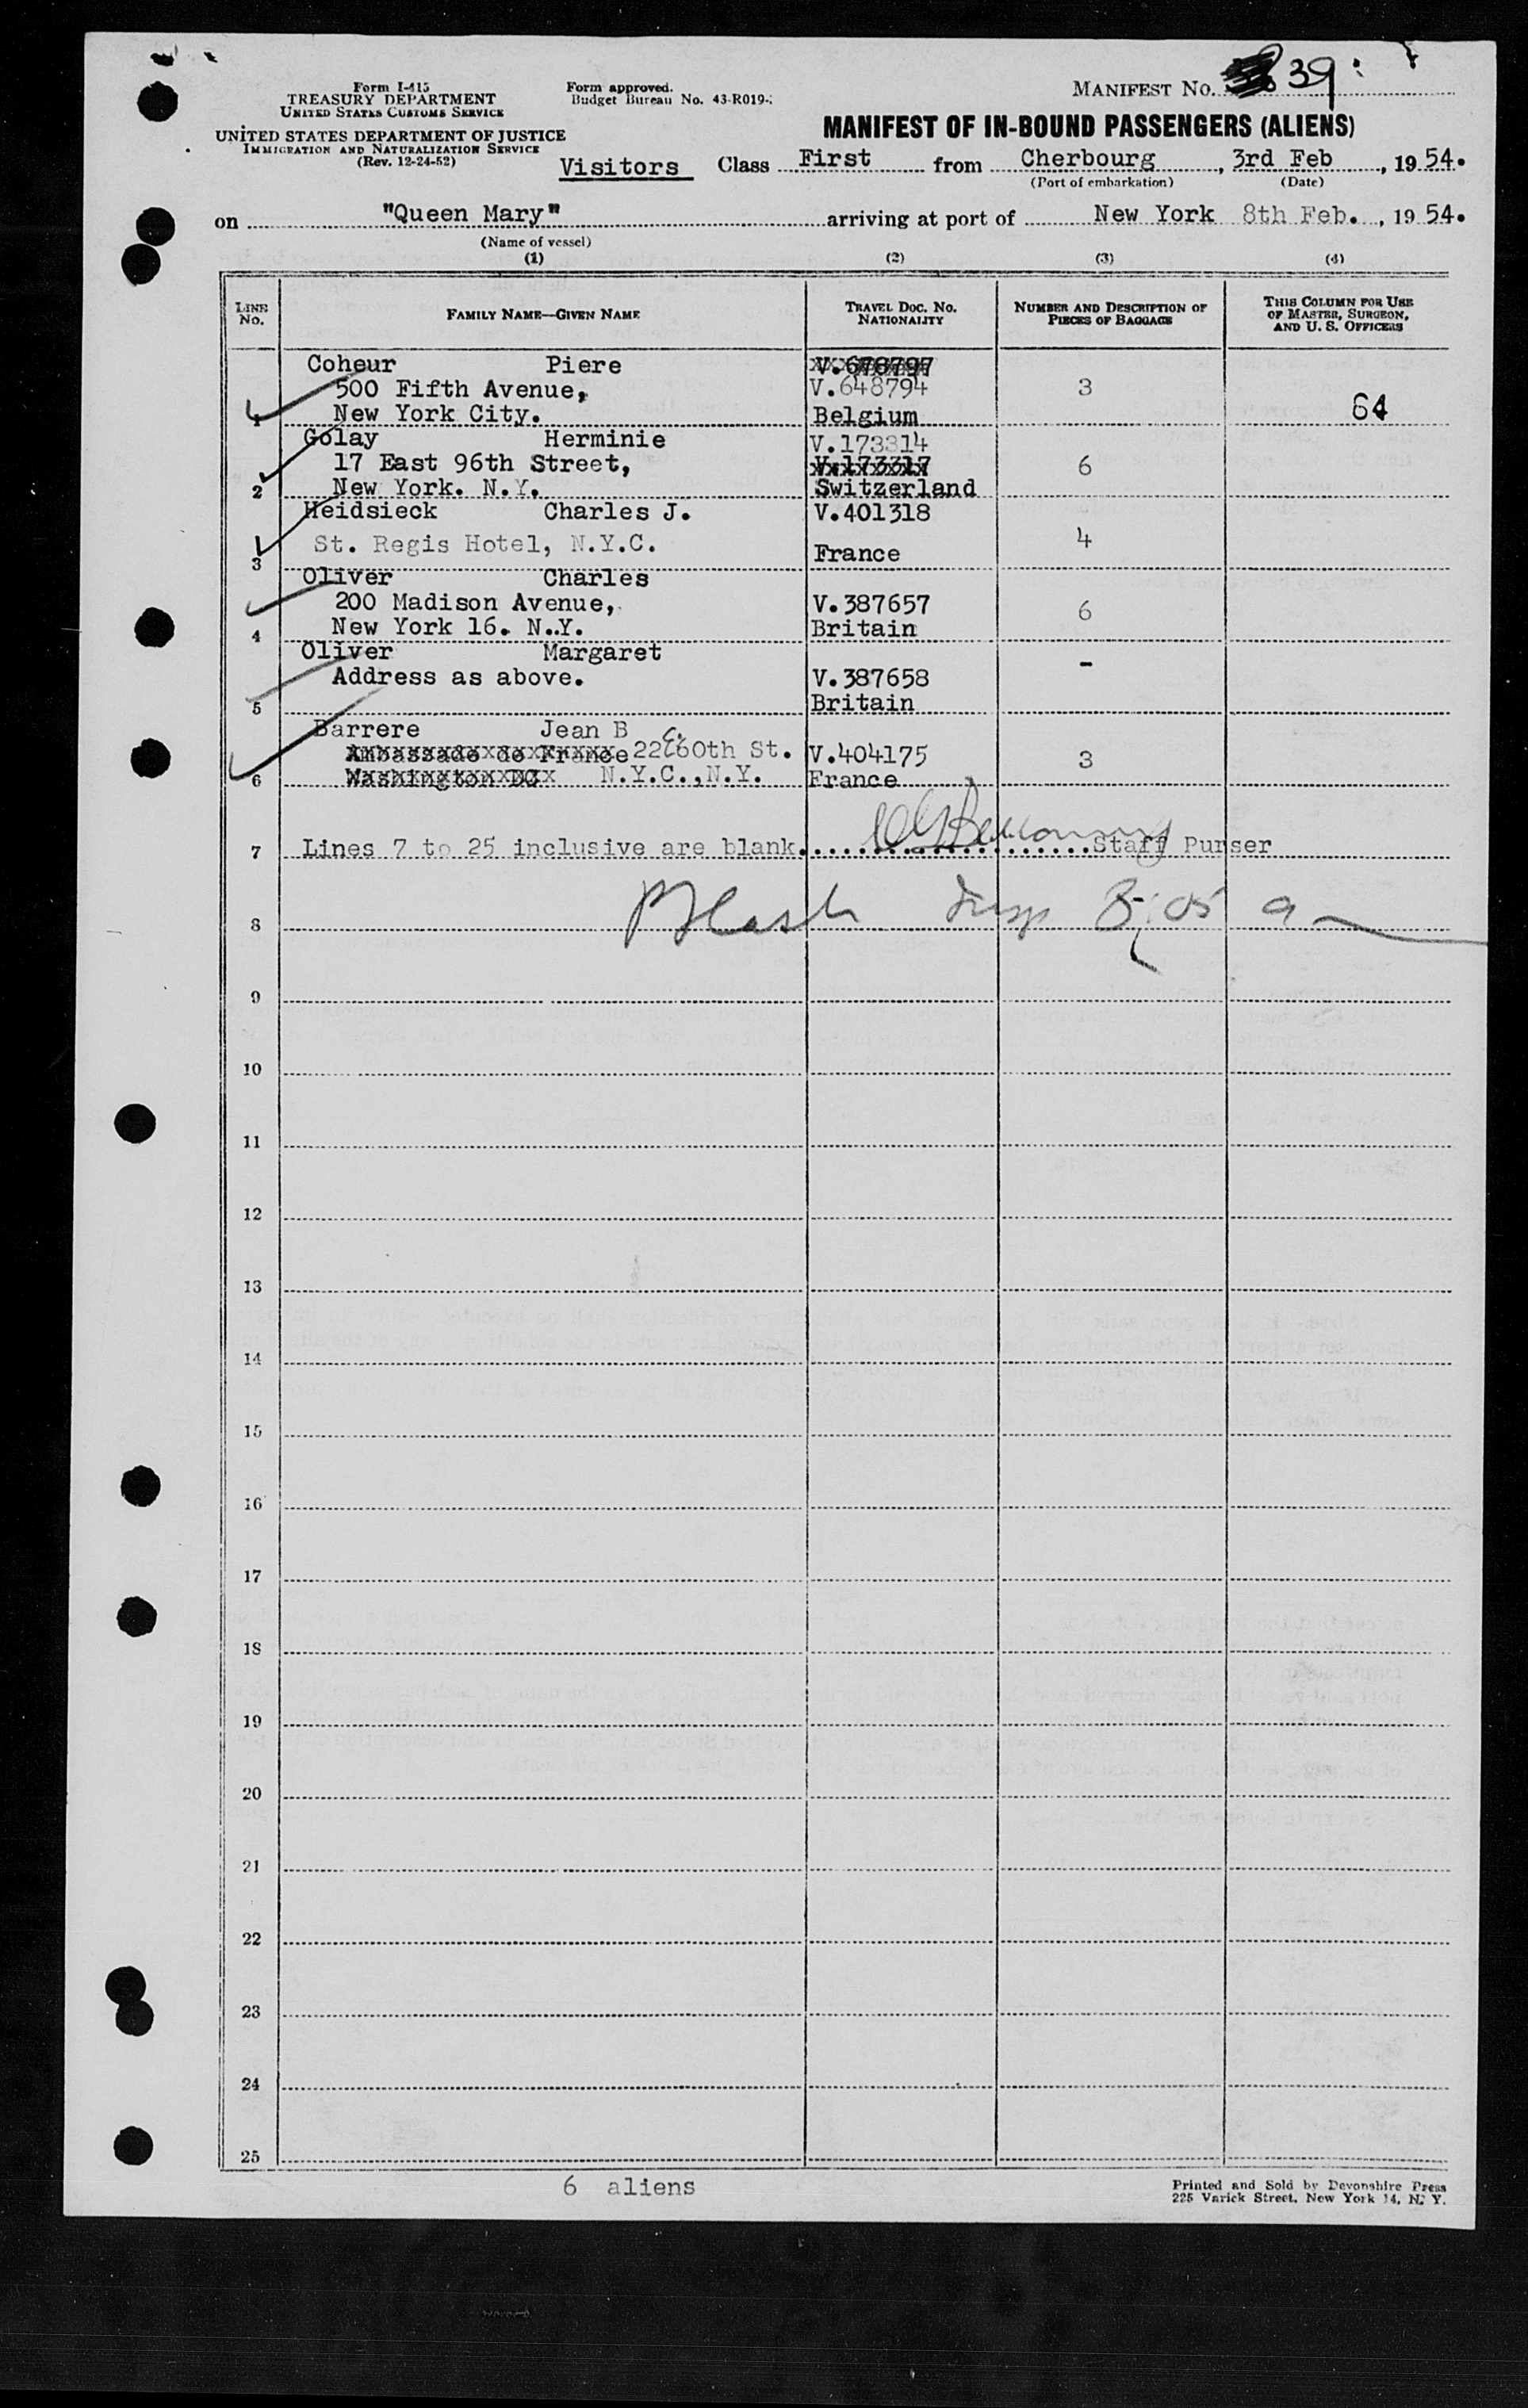 Form I-415
TREASURY DEPARTMENT
UNITED STATES CUSTOMS SERVICE
UNITED STATES DEPARTMENT OF JUSTICE
IMMIGRATION AND NATURALIZATION SERVICE
(Rev. 12-24-52)
Form approved.
Budget Bureau No. 43-R019-
MANIFEST NO. 39
MANIFEST OF IN-BOUND PASSENGERS (ALIENS)
Visitors Class First from Cherbourg, 3rd Feb, 1954.
(Port of embarkation) (Date)
on "Queen Mary" arriving at port of New York 8th Feb., 1954.
(Name of vessel)
(1) (2) (3) (4)
LINE NO.
FAMILY NAME—GIVEN NAME
TRAVEL DOC. NO. NATIONALITY
NUMBER AND DESCRIPTION OF PIECES OF BAGGAGE
THIS COLUMN FOR USE OF MASTER, SURGEON, AND U. S. OFFICERS
Coheur Piere V.678797
500 Fifth Avenue, V.648794 3
1 New York City. Belgium 64
Golay Herminie V.173314
17 East 96th Street, V.173317 6
2 New York. N.Y. Switzerland
Heidsieck Charles J. V.401318
St. Regis Hotel, N.Y.C. 4
3 France
Oliver Charles
200 Madison Avenue, V.387657 6
4 New York 16. N..Y. Britain
Oliver Margaret -
Address as above. V.387658
5 Britain
Barrere Jean B
Ambassade de France 22 E 60th St. V.404175 3
6 Washington DC N.Y.C.,N.Y. France
7 Lines 7 to 25 inclusive are blank. Staff Purser
8
9
10
11
12
13
14
15
16
17
18
19
20
21
22
23
24
25
6 aliens
Printed and Sold by Devonshire Press
225 Varick Street, New York 14, N. Y.